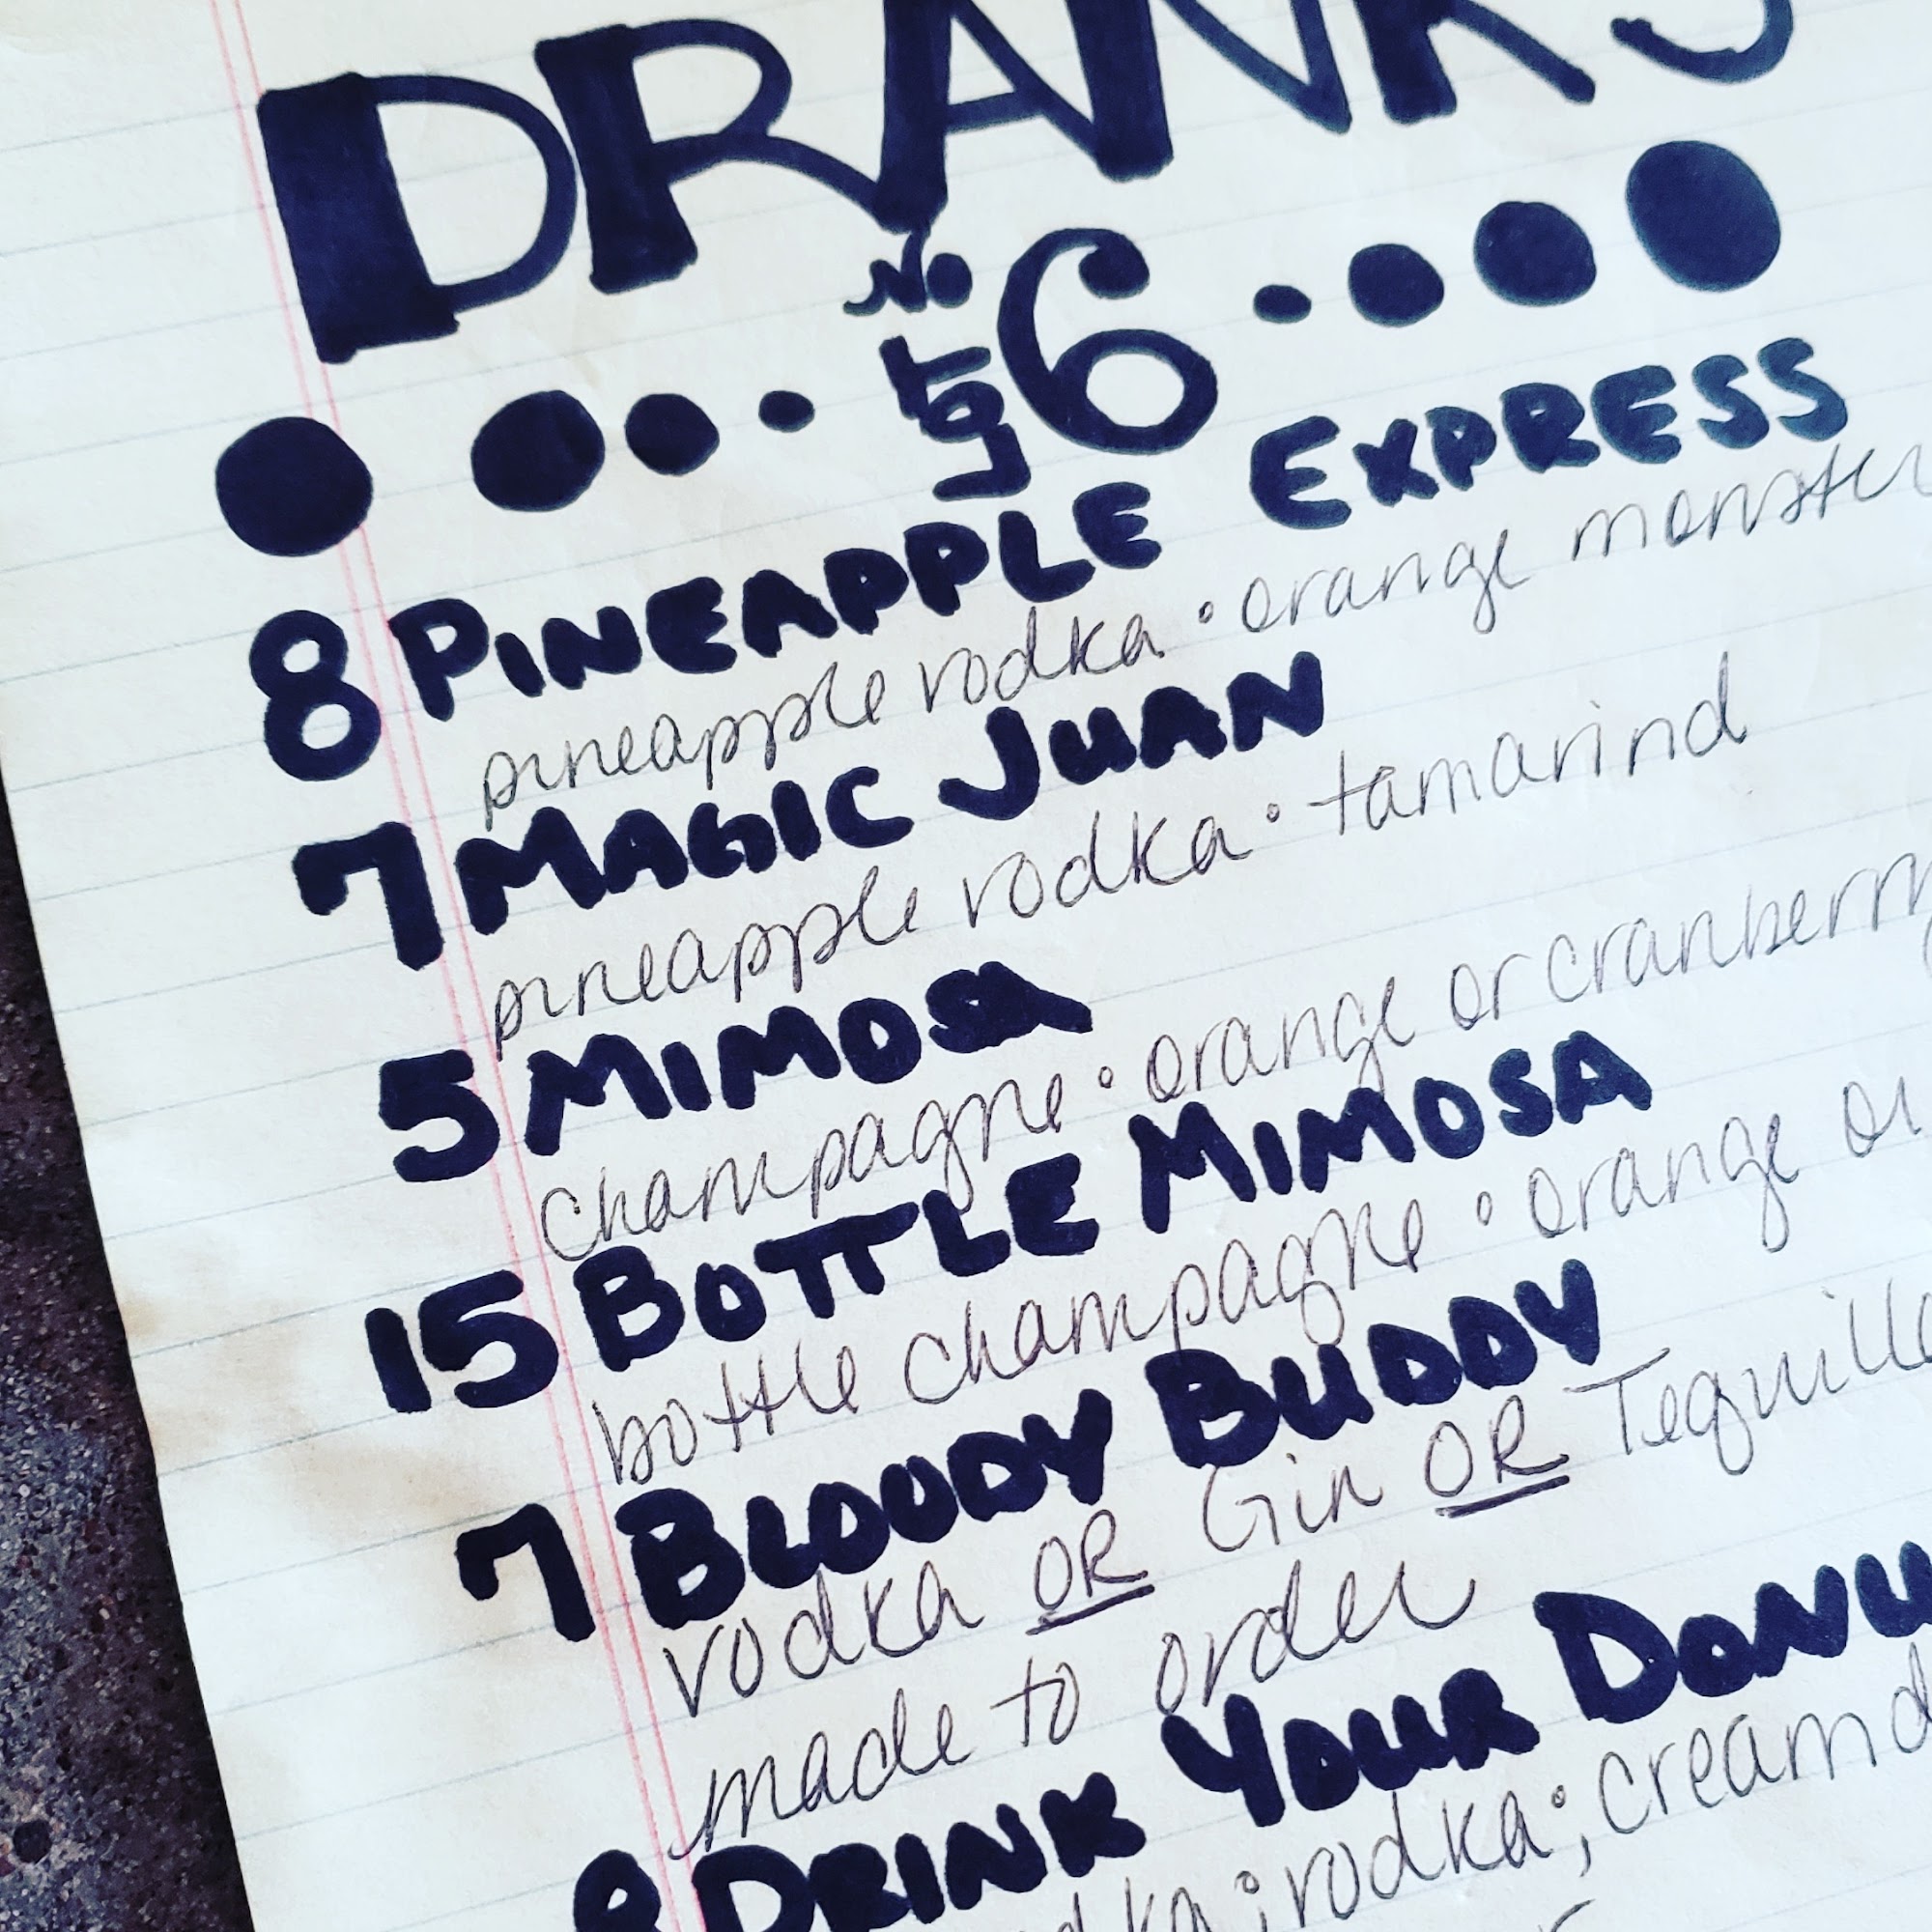 DRANKS
No 6
8 PINEAPPLE EXPRESS
pineapple vodka • orange monster
7 MAGIC JUAN
pineapple vodka • tamarind
5 MIMOSA
champagne • orange or cranberry
15 BOTTLE MIMOSA
bottle champagne • orange or
7 BLOODY BUDDY
vodka OR Gin OR Tequilla
made to order
8 DRINK YOUR DONU
vodka; cream